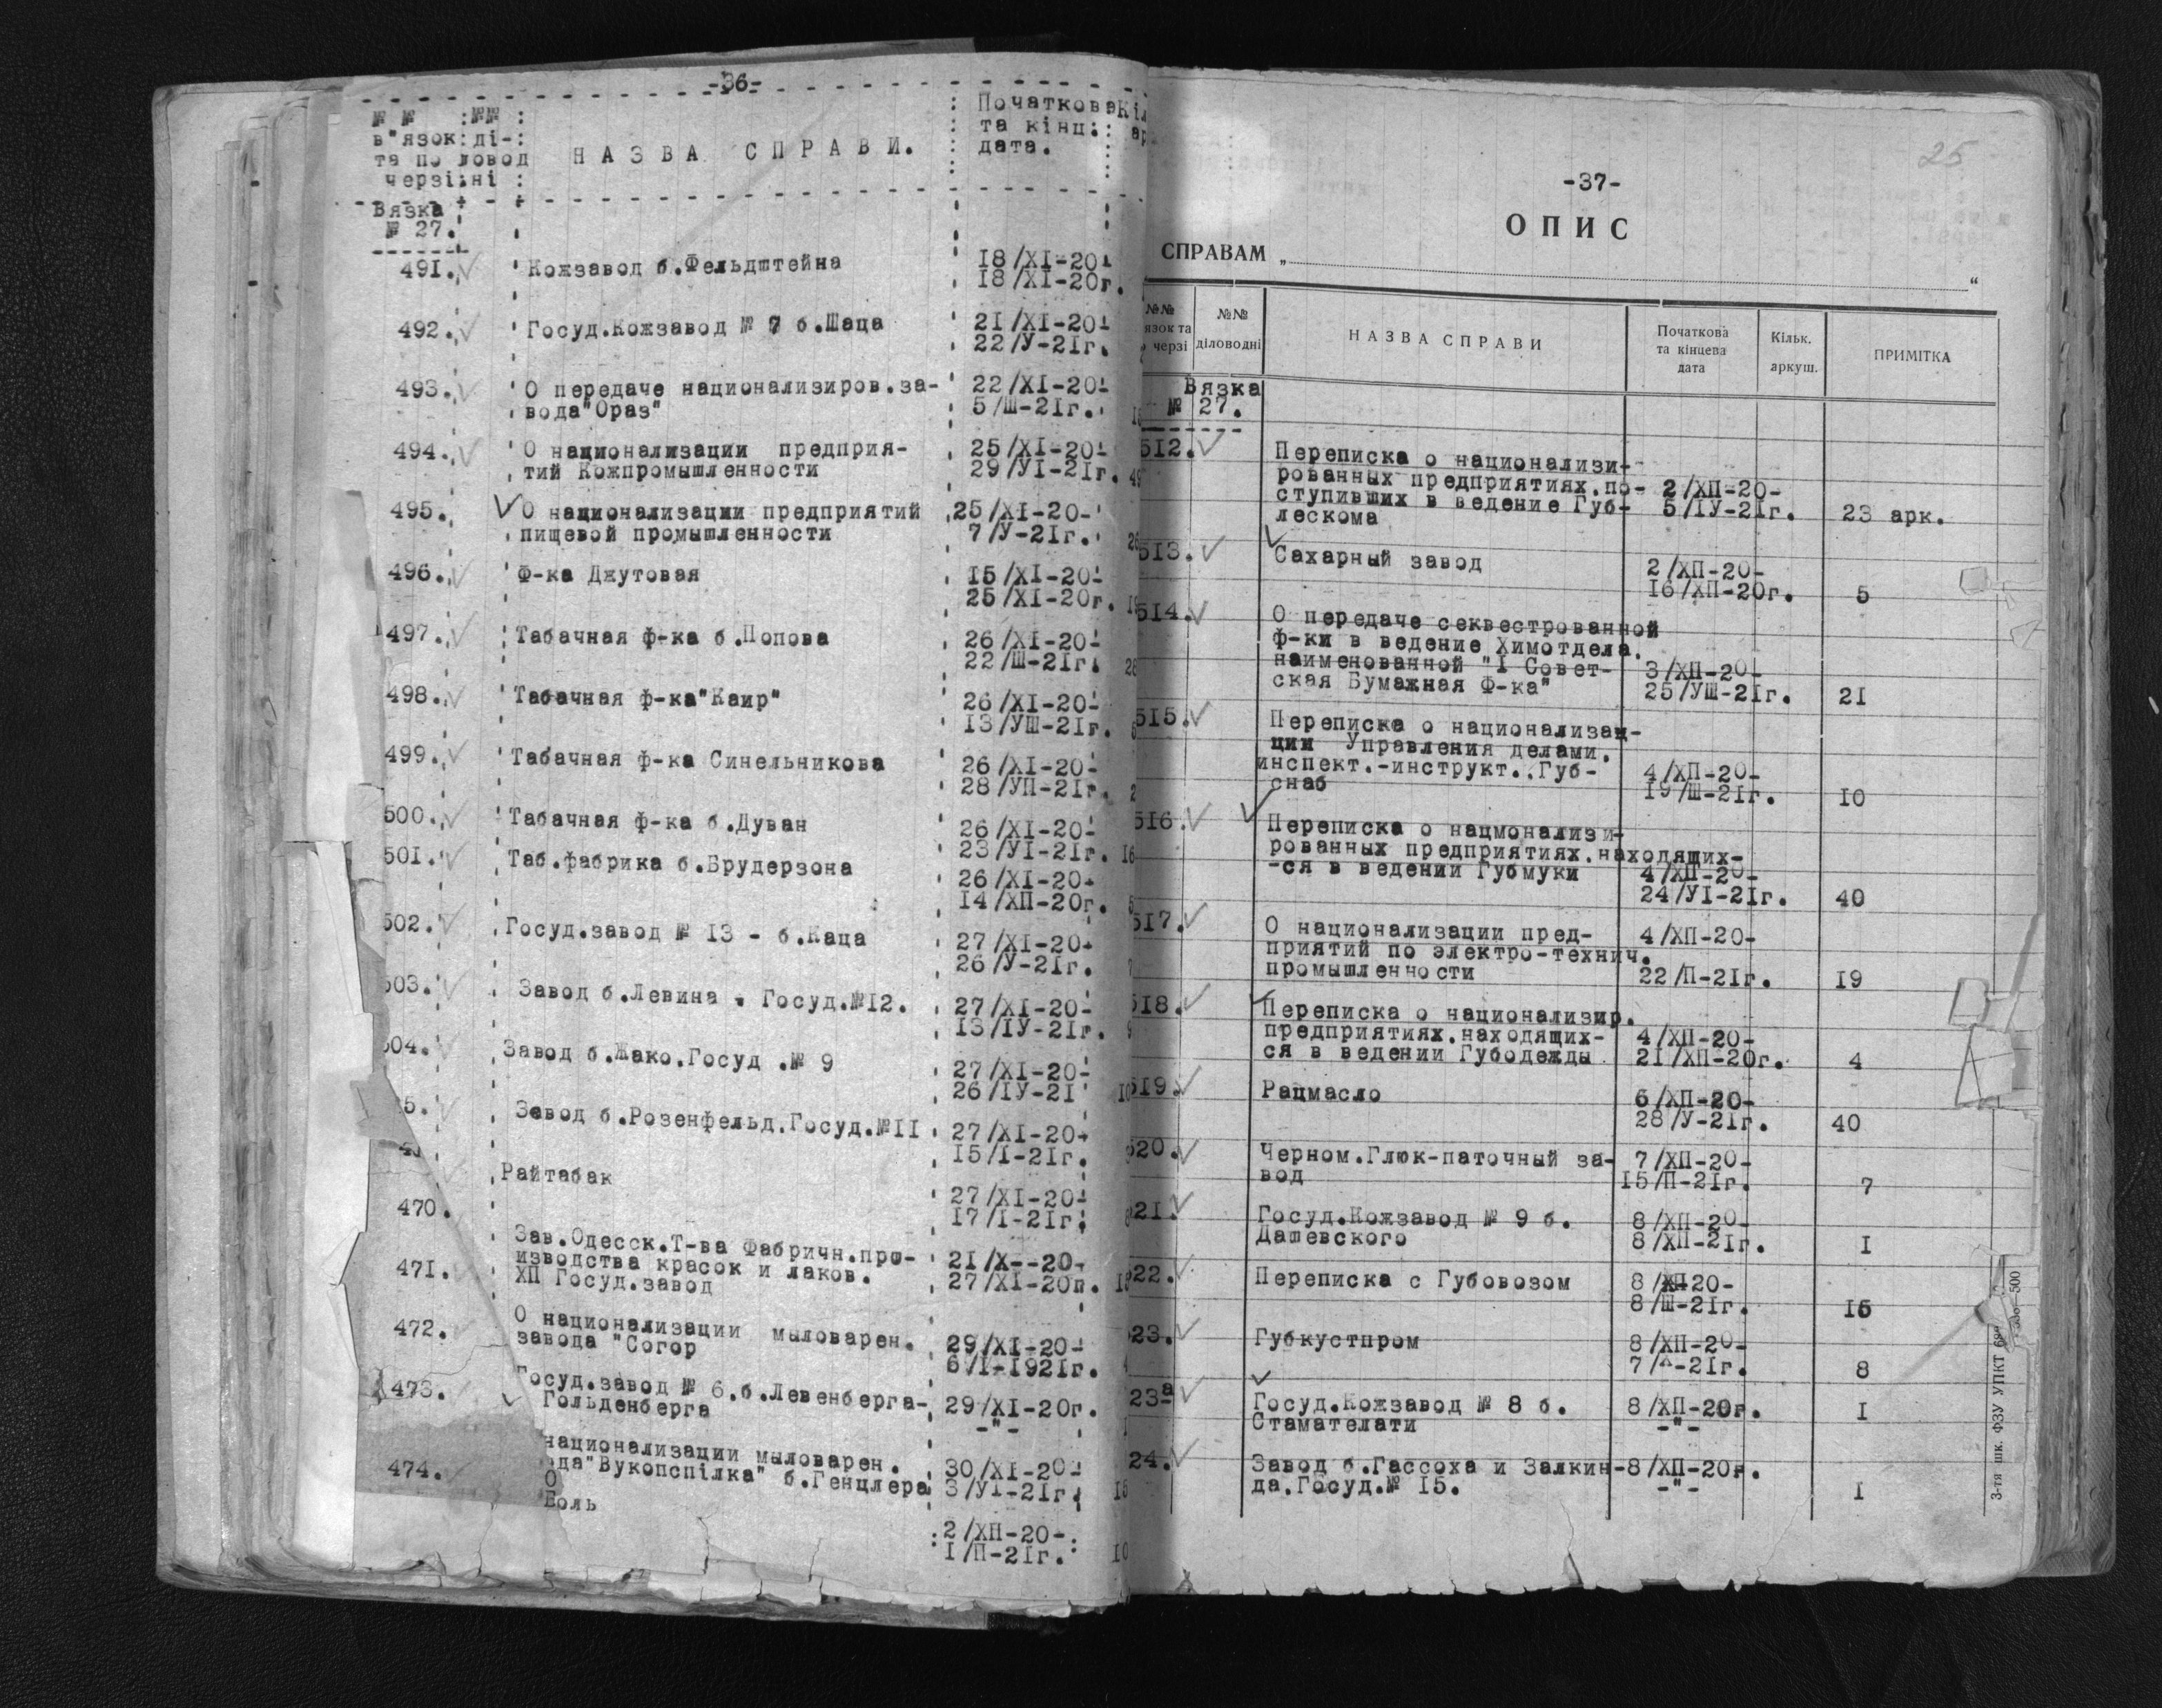 -36-
№ № :№№ :
в"язок:ді-:
та по ловод
черзі:ні :
НАЗВА СПРАВИ.
Початкова
та кінц.:
дата.
Кіл
ар
Вязка
№ 27.
491. Кожзавод б.Фельдштейна 18/XI-20-
18/XI-20г.
492. Госуд.Кожзавод № 7 б.Шаца 21/XI-20-
22/У-21г.
493. О передаче национализиров.за- 22/XI-20-
вода"Ораз" 5/Ш-21г.
494. О национализации предприя- 25/XI-20-
тий Кожпромышленности 29/УІ-21г.
495. О национализации предприятий 25/XI-20-
пищевой промышленности 7/У-21г.
496. Ф-ка Джутовая 15/XI-20-
25/XI-20г.
497. Табачная ф-ка б.Попова 26/XI-20-
22/Ш-21г.
498. Табачная ф-ка"Каир" 26/XI-20-
13/УШ-21г.
499. Табачная ф-ка Синельникова 26/XI-20-
28/УП-21г.
500. Табачная ф-ка б.Дуван 26/XI-20-
23/УІ-21г.
501. Таб.фабрика б.Брудерзона 26/XI-20-
14/ХП-20г.
502. Госуд.завод № 13 - б.Каца 27/XI-20-
26/У-21г.
503. Завод б.Левина . Госуд.№12. 27/XI-20-
13/ІУ-21г.
504. Завод б.Жако.Госуд .№ 9 27/XI-20-
26/ІУ-21
5. Завод б.Розенфельд.Госуд.№11 27/XI-20-
15/І-21г.
Райтабак 27/XI-20-
470. 17/І-21г.
Зав.Одесск.Т-ва Фабричн.про-
471. изводства красок и лаков. 21/Х--20-
ХП Госуд.завод 27/XI-20г.
472. О национализации мыловарен. 29/XI-20-
завода "Согор 6/І-1921г.
473. Госуд.завод № 6.б.Левенберга- 29/XI-20г.
Гольденберга -"-
национализации мыловарен. 30/XI-20-
474. ода"Вукопспілка" б.Генцлера 3/УІ-21г.
О
Боль
2/ХП-20-
1/П-21г.
25
-37-
ОПИС
СПРАВАМ „ “
№№
язок та
черзі
№№
діловодні
НАЗВА СПРАВИ
Початкова
та кінцева
дата
Кільк.
аркуш.
ПРИМІТКА
Вязка
№ 27.
512. Переписка о национализи-
рованных предприятиях.по- 2/ХП-20-
ступивших в ведение Губ- 5/ІУ-21г. 23 арк.
лескома
513. Сахарный завод 2/ХП-20-
16/ХП-20г. 5
514. О передаче секвестрованной
ф-ки в ведение Химотдела.
наименованной "I Совет- 3/ХП-20-
ская Бумажная Ф-ка" 25/УШ-21г. 21
515. Переписка о национализац-
ции Управления делами.
инспект.-инструкт..Губ- 4/ХП-20-
снаб 19/Ш-21г. 10
516. Переписка о нацмонализи-
рованных предприятиях.находящих-
-ся в ведении Губмуки 4/ХП-20-
24/УІ-21г. 40
517. О национализации пред- 4/ХП-20-
приятий по электро-технич.
промышленности 22/П-21г. 19
518. Переписка о национализир.
предприятиях.находящих- 4/ХП-20-
ся в ведении Губодежды 21/ХП-20г. 4
519. Рацмасло 6/ХП-20-
28/У-21г. 40
520. Черном.Глюк-паточный за- 7/ХП-20-
вод 15/П-21г. 7
21. Госуд.Кожзавод № 9 б. 8/ХП-20-
Дашевского 8/ХП-21г. 1
22. Переписка с Губовозом 8/ХП20-
8/Ш-21г. 15
23. Губкустпром 8/ХП-20-
7/ -21г. 8
23а Госуд.Кожзавод № 8 б. 8/ХП-20г. 1
Стамателати -"-
24. Завод б.Гассоха и Залкин- 8/ХП-20г.
да.Госуд.№ 15. -"- 1
3-тя шк. ФЗУ УПКТ 500